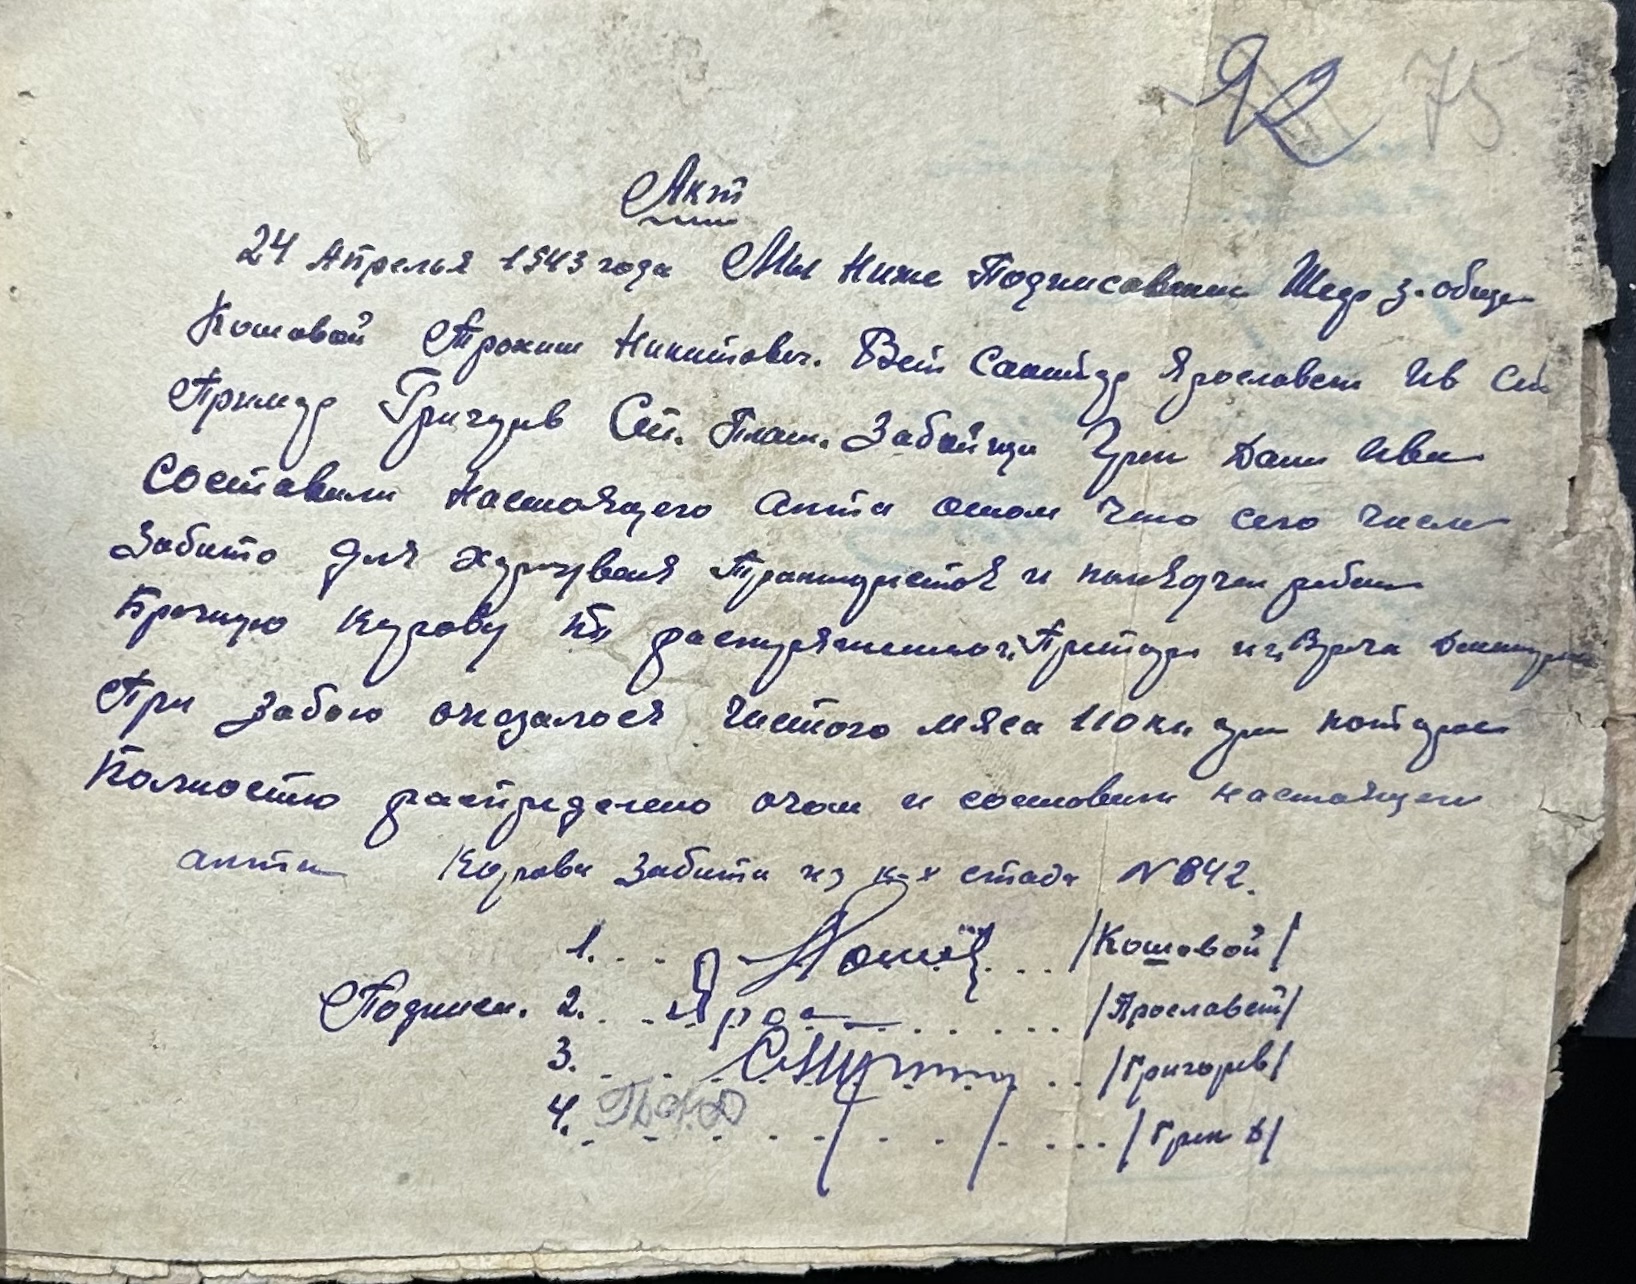 92 75
Акт
24 Апрелья 1943 года Мы Ниже Подписавши Шеф з-общи
Кошовой Трохим Никитович. Вет Санитар Ярославет Ив
Примар Григорів Ст. План. Забойщи Грин Дани Иван
составили настоящего акта отом что сего числа
Забито для харчуваня Трактористов и
Брачную Карову По распоряжению Притори и Врача
При забою оказалося чистого мяса 110 кг
Полностю распределено очом и составили настоящего
акта Карова Забита из к-х стада N 842.
1. /Кошовой/
Подписи. 2. Ярос /Ярославет/
3. /Григорів/
4. /Грин Д/